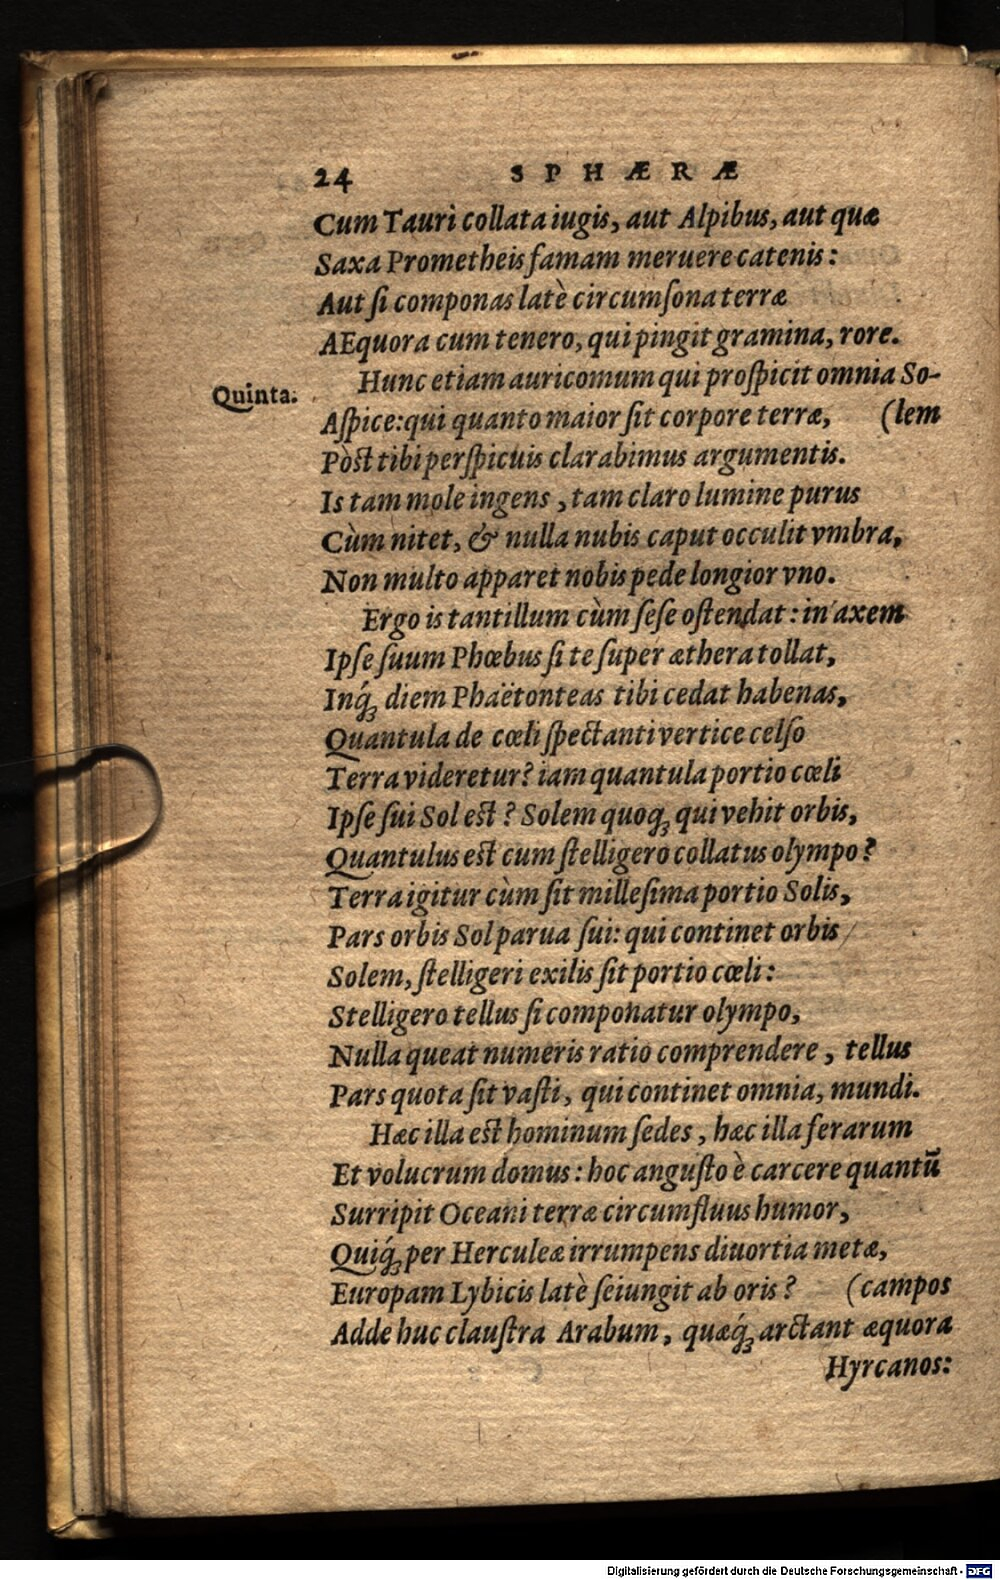 24 SPHÆRÆ
Cum Tauri collata iugis, aut Alpibus, aut quæ
Saxa Prometheis famam meruere catenis:
Aut ſi componas latè circumſona terræ
AEquora cum tenero, qui pingit gramina, rore.
Quinta. Hunc etiam auricomum qui proſpicit omnia So-
Aſpice: qui quanto maior ſit corpore terræ, (lem
Pòst tibi perſpicuis clarabimus argumentis.
Is tam mole ingens, tam claro lumine purus
Cùm nitet, & nulla nubis caput occulit vmbra,
Non multo apparet nobis pede longior vno.
Ergo is tantillum cùm ſeſe oſtendat: in axem
Ipſe ſuum Phœbus ſi te ſuper æthera tollat,
Inq́ꝫ diem Phaëtonteas tibi cedat habenas,
Quantula de cœli ſpectanti vertice celſo
Terra videretur? iam quantula portio cœli
Ipſe ſui Sol est? Solem quoqꝫ qui vehit orbis,
Quantulus est cum ſtelligero collatus olympo?
Terra igitur cùm ſit milleſima portio Solis,
Pars orbis Sol parua ſui: qui continet orbis
Solem, ſtelligeri exilis ſit portio cœli:
Stelligero tellus ſi componatur olympo,
Nulla queat numeris ratio comprendere, tellus
Pars quota ſit vaſti, qui continet omnia, mundi.
Hæc illa est hominum ſedes, hæc illa ferarum
Et volucrum domus: hoc anguſto è carcere quantū
Surripit Oceani terræ circumfluus humor,
Quiq́ꝫ per Herculeæ irrumpens diuortia metæ,
Europam Lybicis latè ſeiungit ab oris? (campos
Adde huc clauſtra Arabum, quæq́ꝫ arctant æquora
Hyrcanos:
Digitalisierung gefördert durch die Deutsche Forschungsgemeinschaft - DFG